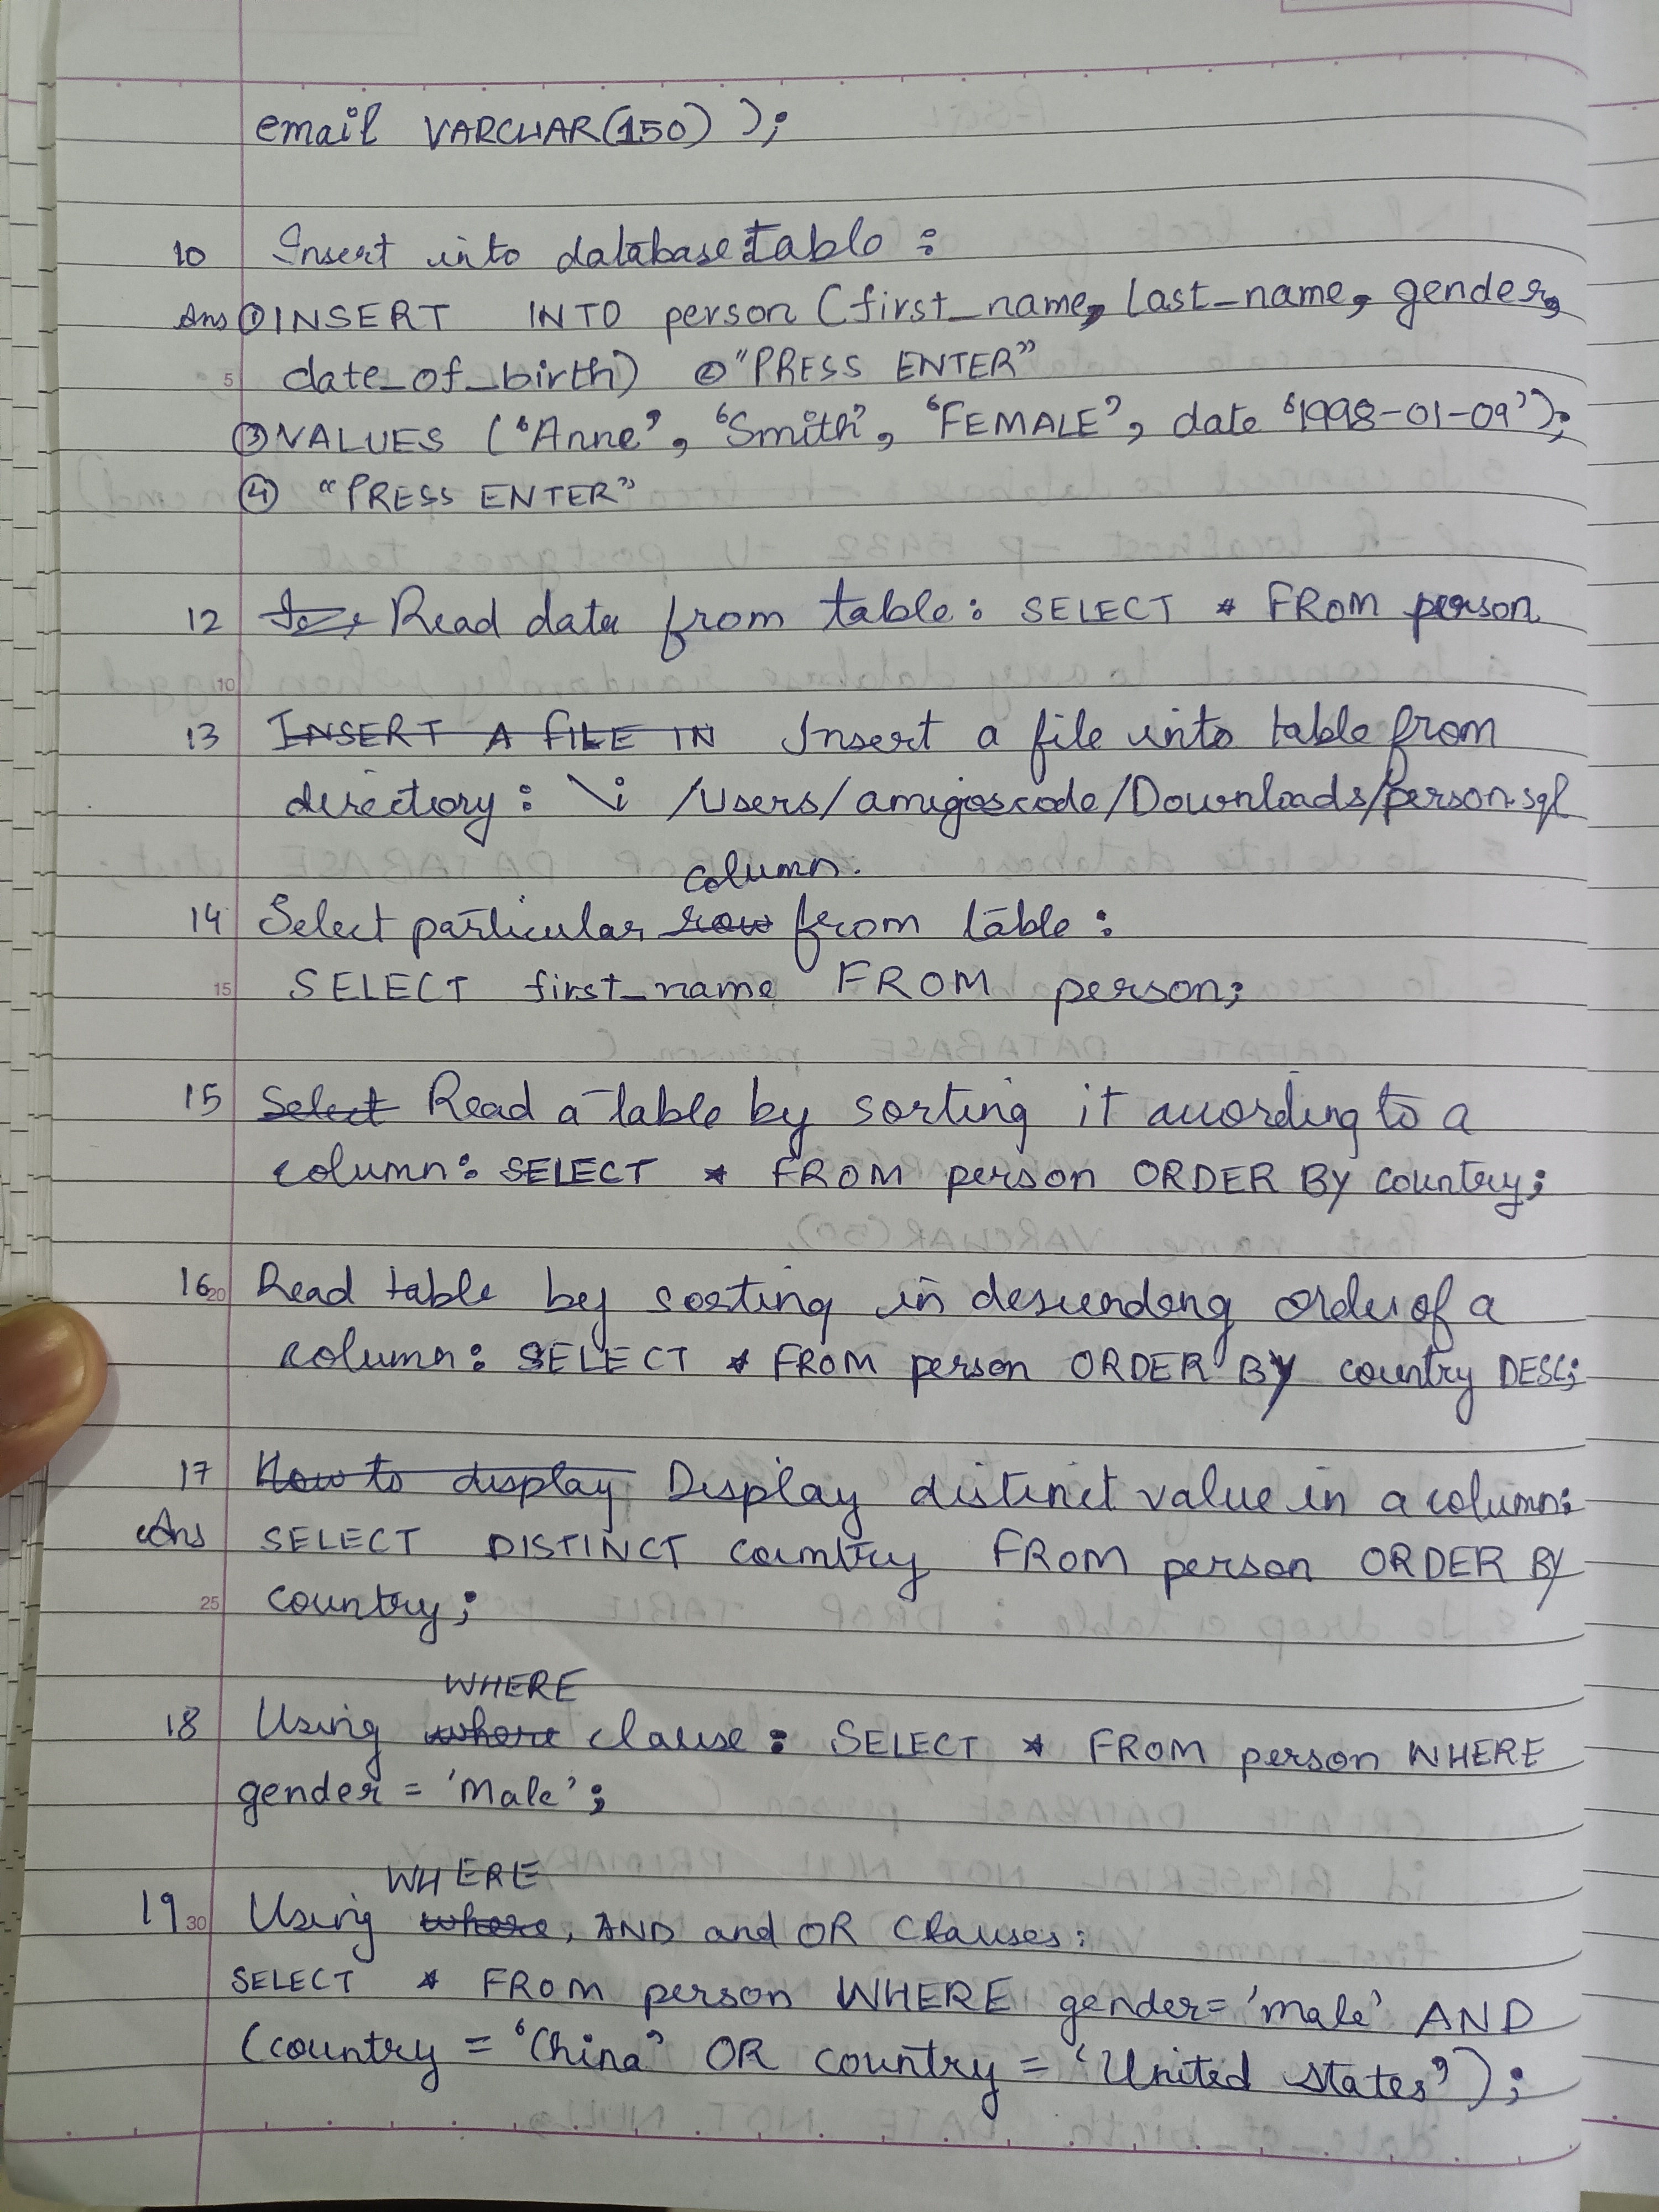 email VARCHAR(150) );
10 Insert into database table :
Ans ① INSERT INTO person (first_name, last_name, gender,
date_of_birth) ② "PRESS ENTER"
③ VALUES ('Anne', 'Smith', 'FEMALE', date '1998-01-09');
④ "PRESS ENTER"
12 Read data from table: SELECT * FROM person
13 INSERT A FILE IN Insert a file into table from
directory: \i /Users/amigoscode/Downloads/person.sql
column.
14 Select particular row from table :
SELECT first_name FROM person;
15 Select Read a table by sorting it according to a
column: SELECT * FROM person ORDER BY country;
16 Read table by sorting in descendong order of a
column: SELECT * FROM person ORDER BY country DESC;
17 How to display Display distinct value in a column:
Ans SELECT DISTINCT country FROM person ORDER BY
country;
WHERE
18 Using where clause: SELECT * FROM person WHERE
gender = 'Male';
WHERE
19 Using where, AND and OR Clauses:
SELECT * FROM person WHERE gender= 'male' AND
(country = 'China' OR country = 'United States');